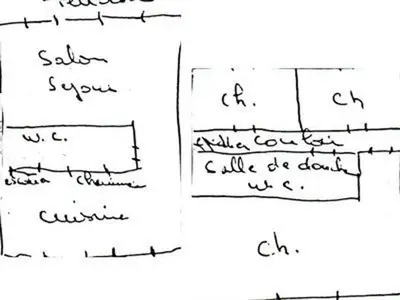 Salon
Sejour
w.c.
Cheminée
Cuisine
ch.
ch
Couloir
Salle de douche
w.c.
ch.